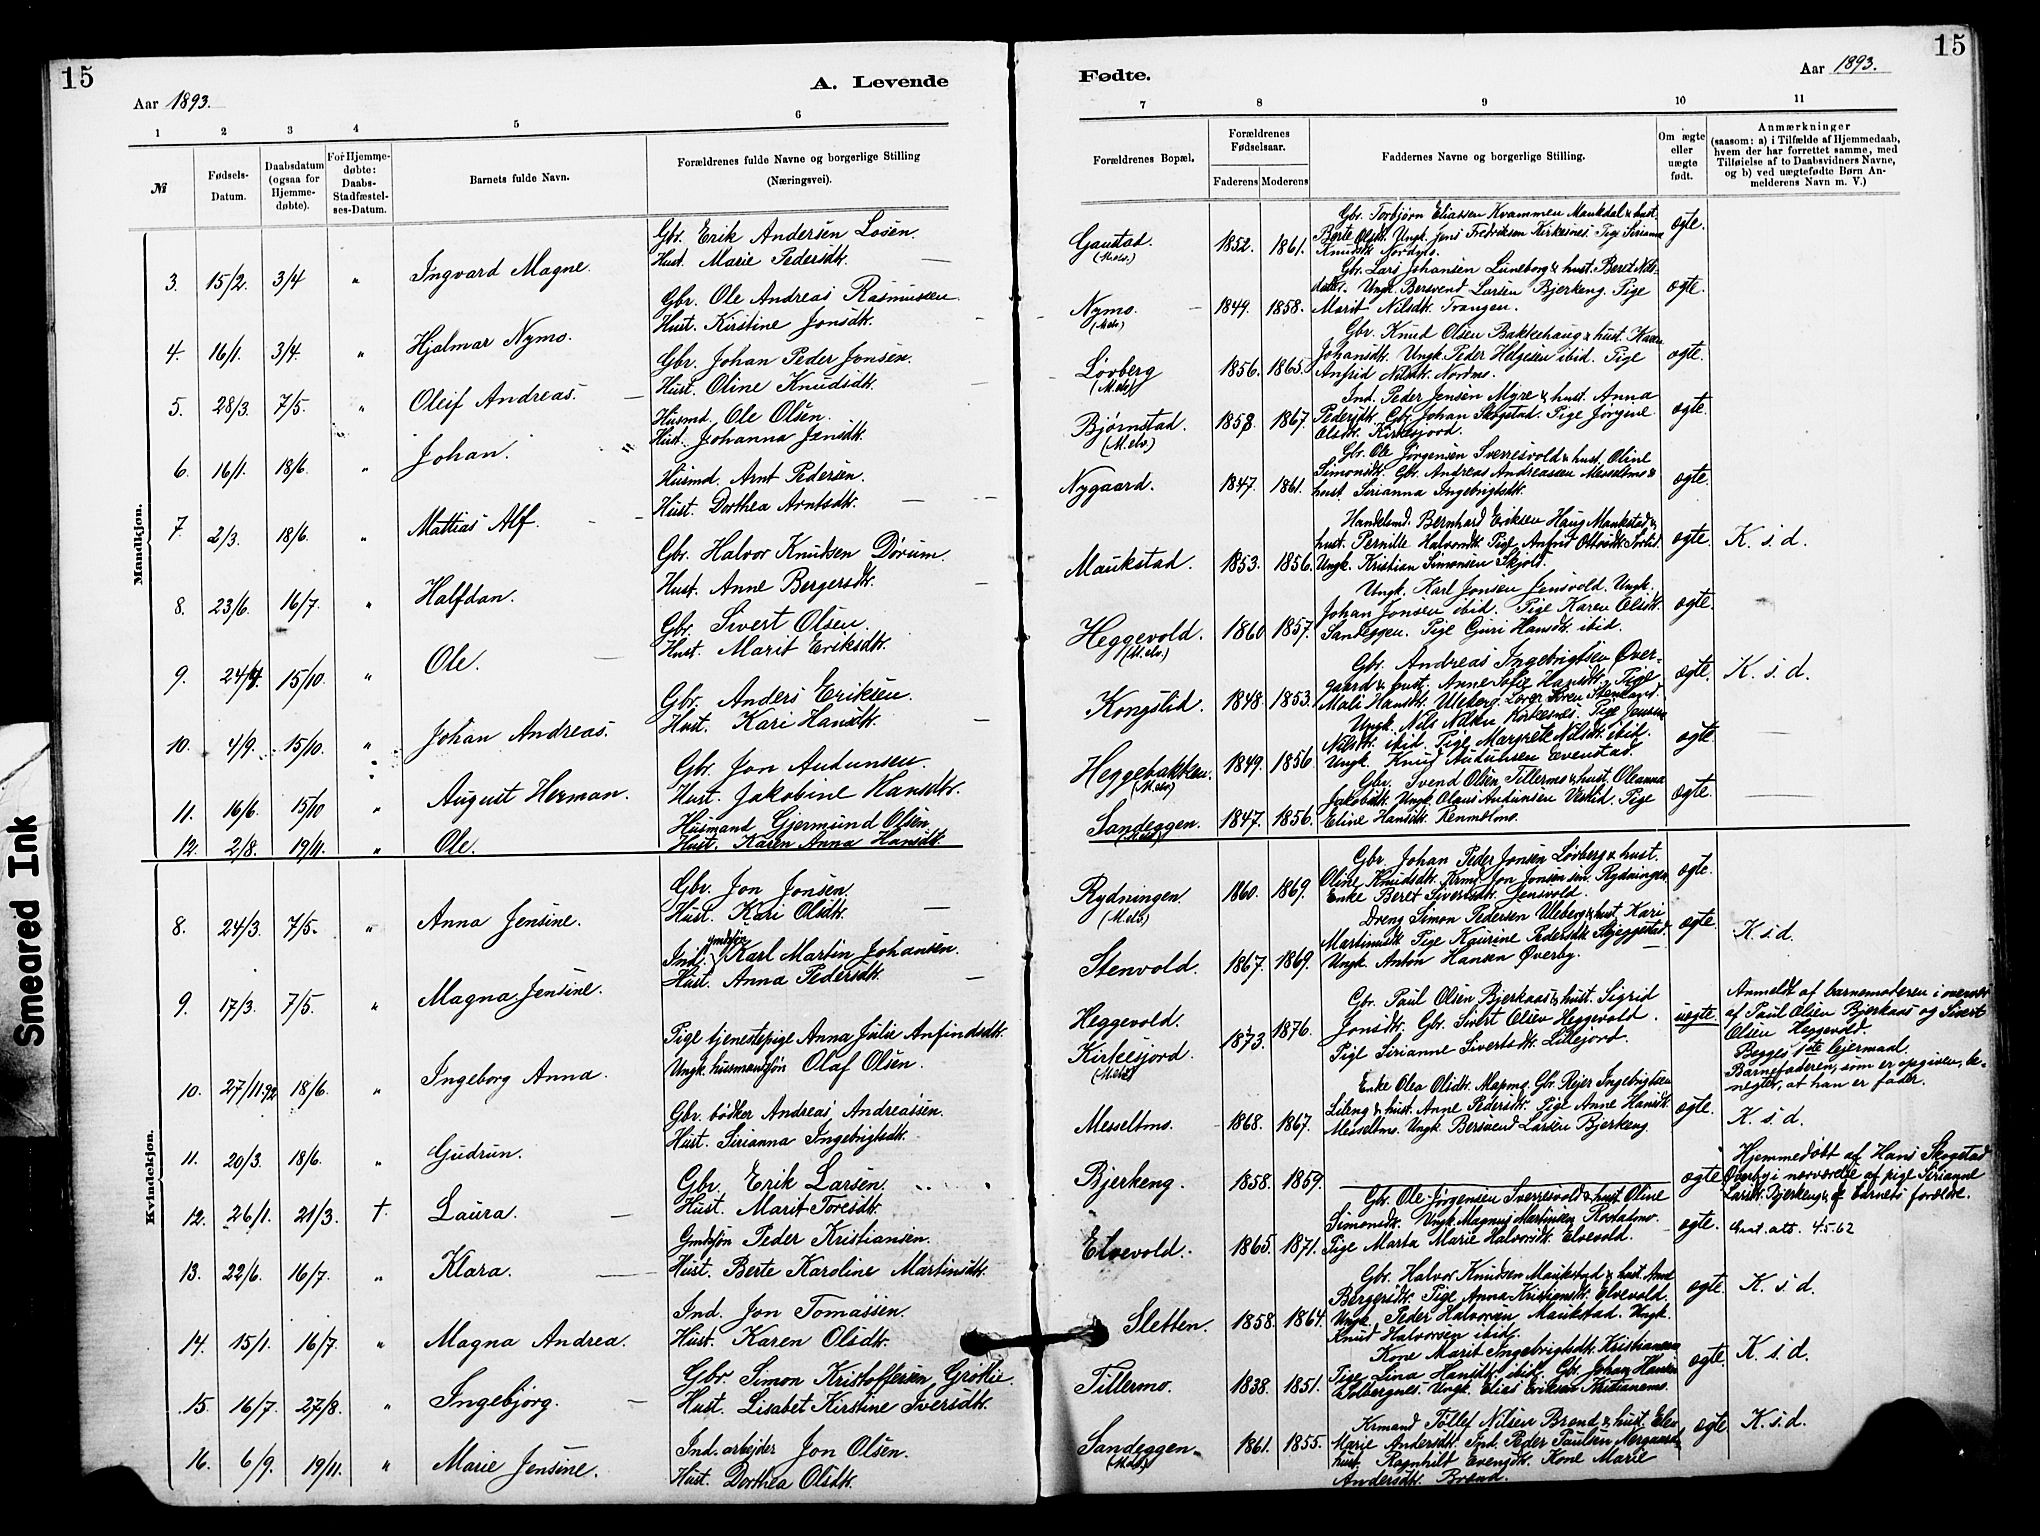 15
Aar 1893.
A. Levende
1 2 3 4 5 6
№
Fødsels-
Datum.
Daabsdatum
(ogsaa for
Hjemme-
døbte).
For Hjemme-
døbte:
Daabs-
Stadfæstel-
ses-Datum.
Barnets fulde Navn.
Forældrenes fulde Navne og borgerlige Stilling
(Næringsvei).
Mandkjøn.
3. 15/2. 3/4 " Ingvard Magne.
Gbr. Erik Andersen Løsen.
Hust. Marie Pedersdtr.
4. 16/1. 3/4. " Hjalmar Nymo.
Gbr. Ole Andreas Rasmussen.
Hust. Kirstine Jonsdtr.
5. 28/3. 7/5. " Oleif Andreas.
Gbr. Johan Peder Jonsen.
Hust. Oline Knudsdtr.
6. 16/1. 18/6. " Johan.
Husmd. Ole Olsen.
Hust. Johanna Jensdtr.
7. 2/3. 18/6. " Mattias Alf.
Husmd. Arnt Pedersen.
Hust. Dorthea Arntsdtr.
8. 23/6. 16/7. " Halfdan.
Gbr. Halvor Knudsen Dørum.
Hust. Anne Bergersdtr.
9. 15/10. " Ole.
Gbr. Sivert Olsen.
Hust. Marit Eriksdtr.
10. 4/9. 15/10. " Johan Andreas.
Gbr. Anders Eriksen.
Hust. Kari Hansdtr.
11. 16/6. 15/10 " August Herman.
Gbr. Jon Audunsen.
Hust. Jakobine Hansdtr.
12. 2/8. 19/11. " Ole.
Husmand Gjermund Olsen
Hust. Karen Anna Hansdtr.
Kvindekjøn.
8. 24/3. 7/5. " Anna Jensine.
Gbr. Jon Jonsen.
Hust. Kari Olsdtr.
9. 17/3. 7/5. " Magna Jensine.
Ind. Karl Martin Johansen.
Hust. Anna Pedersdtr.
10. 27/11.92 18/6. " Ingeborg Anna.
Pige tjenestepige Anna Julie Anfindsdtr.
Ungk. husmandssøn Olaf Olsen.
11. 20/3. 18/6. " Gudrun.
Gbr. bødker Andreas Andreassen.
Hust. Sirianna Ingebrigtsdtr.
12. 26/1. 21/3. † Laura.
Gbr. Erik Larsen.
Hust. Marit Toresdtr.
13. 22/6. 16/7. " Klara.
Gmdsøn Peder Kristiansen.
Hust. Berte Karoline Martinsdtr.
14. 15/1. 16/7. " Magna Andrea.
Ind. Jon Tomassen.
Hust. Karen Olsdtr.
15. 16/7. 27/8. " Ingebjørg.
Gbr. Simon Kristoffersen Grøtlie
Hust. Lisabet Kirstine Iversdtr.
16. 6/9. 19/11. " Marie Jensine.
Ind. arbejder Jon Olsen.
Hust. Dorthea Olsdtr.
Smeared Ink
15
Fødte.
Aar 1893.
7 8 9 10 11
Forældrenes Bopæl.
Forældrenes
Fødselsaar.
Faderens Moderens
Faddernes Navne og borgerlige Stilling.
Om ægte
eller
uægte
født.
Anmærkninger
(saasom: a) i Tilfælde af Hjemmedaab,
hvem der har forrettet samme, med
Tilføielse af to Daabsvidners Navne,
og b) ved uægtefødte Børn An-
melderens Navn m. V.)
Gaustad. (M.elv.) 1852. 1861. ægte.
Gbr. Torbjørn Eliassen Kvammen Maukdal & hust.
Berte Olsdtr. Ungk. Jens Fredriksen Kirkesnes. Pige Sirianna
Nymo. (M.elv) 1849. 1858. ægte.
Gbr. Lars Johansen Lüneborg & hust. Beret Nils-
datter. Ungk. Bersvend Larsen Bjerkeng. Pige
Marit Nilsdtr. Trangen.
Løvberg (M.elv) 1856. 1865. ægte.
Gbr. Knud Olsen Bakkehaug & hust. Karen
Johansdtr. Ungk. Peder Helgesen ibid. Pige
Anfrid Nilsdtr. Nordmo.
Bjørnstad. (M.elv) 1858. 1867. ægte.
Ind. Peder Jensen Myre & hust. Anna
Pedersdtr. Gbr. Johan Skogstad. Pige Jørgine
Olsdtr. Kirkesjord.
Nygaard. 1847. 1861. ægte.
Gbr. Ole Jørgensen Sverresvold & hust. Oline
Simonsdtr. Gbr. Andreas Andreassen Messeltmo &
hust. Sirianna Ingebrigtsdtr.
Maukstad. 1853. 1856. ægte. K. s. d.
Handelsmd. Bernhard Eriksen Haug Maukstad &
hust. Pernille Halvorsdtr. Pige Anfrid
Ungk. Kristian Simonsen Skjold.
Heggevold. (M.elv) 1860 1857. ægte.
Ungk. Karl Jonsen Jensvold. Ungk.
Johan Jonsen ibid. Pige Karen Olsdtr.
Sandeggen. Pige Guri Hansdtr. ibid.
Kongslid. 1848. 1853. ægte. K. s. d.
Gbr. Andreas Ingebrigtsen Øver-
gaard & hust. Anne Sofie Hansdtr. Pige
Mali Hansdtr. Uleberg.
Heggebakken. (M.elv) 1849. 1856. ægte.
Ungk. Nils Nilsen Kirkesnes. Pige
Nilsdtr. ibid. Pige Margrete Nilsdtr. ibid.
Ungk. Knud Audunsen Evenstad.
Sandeggen. (M.elv) 1847. 1856. ægte.
Gbr. Svend Olsen Tillermo & hust. Oleanna
Jakobsdtr. Ungk. Olaus Audunsen Vestlid. Pige
Eline Hansdtr. Renmelmo.
Rydningen. (M.elv) 1860. 1869. ægte.
Gbr. Johan Peder Jonsen Løvberg & hust.
Oline Knudsdtr. Krmd. Jon Jonsen sen. Rydningen.
Enke Beret Sivertsdtr. Jensvold.
Stenvold. 1867. 1869. ægte. K.s.d.
Dreng Simon Pedersen Uleberg & hust. Kari
Martinusdtr. Pige Kaurine Pedersdtr. Skjeggestad.
Ungk. Anton Hansen Øverby.
Heggevold.
Kirkesjord. (M.elv) 1873. 1876. uægte.
Gbr. Paul Olsen Bjerkaas & hust. Sigrid
Jonsdtr. Gbr. Sivert Olsen Heggevold.
Pige Sirianne Sivertsdtr. Lillejord.
Anmeldt af barnemoderen i overvær
af Paul Olsen Bjerkaas og Sivert
Olsen Heggevold.
Begges 1ste leiermaal.
Barnefaderen, som er opgiven, be-
negter, at han er fader.
Messeltmo. 1868. 1867. ægte. K. s. d.
Enke Olea Olsdtr. Mapmo. Gbr. Rejer Ingebrigtsen
Lileng & hust. Anne Pedersdtr. Pige Anne Hansdtr.
Messeltmo. Ungk. Bersvend Larsen Bjerkeng.
Bjerkeng. 1858. 1859. ægte
Hjemmedøbt af Hans Skogstad
Øverby i nærværelse af pige Sirianne
Larsdtr. Bjerkeng & af barnets forældre.
Elvevold. 1865. 1871. ægte. 4.5.62
Gbr. Ole Jørgensen Sverresvold & hust. Oline
Simonsdtr. Ungk. Magnus Martinsen Rostadmo.
Pige Marta Marie Halvorsdtr. Elvevold.
Sletten. 1858. 1864. ægte. K. s. d.
Gbr. Halvor Knudsen Maukstad & hust. Anne
Bergersdtr. Pige Anna Kristiansdtr. Elvevold.
Ungk. Peder Halvorsen Maukstad. Ungk.
Knud Halvorsen ibid.
Tillermo. 1838. 1851. ægte. K. s. d.
Kone Marit Ingebrigtsdtr. Kristiansmo
Pige Lina Hansdtr. ibid. Gbr. Johan Hansen
Solbergnes. Ungk. Elias Eriksen Kristiansmo.
Sandeggen. (M.elv) 1861. 1855. ægte K.s.d.
Krmand Tollef Nilsen Brend & hust. Elen
Marie Andersdtr. Ind. Peder Paulsen Nergaard &
hust. Ragnhild Evensdtr. Kone Marie
Andersdtr. Brend.